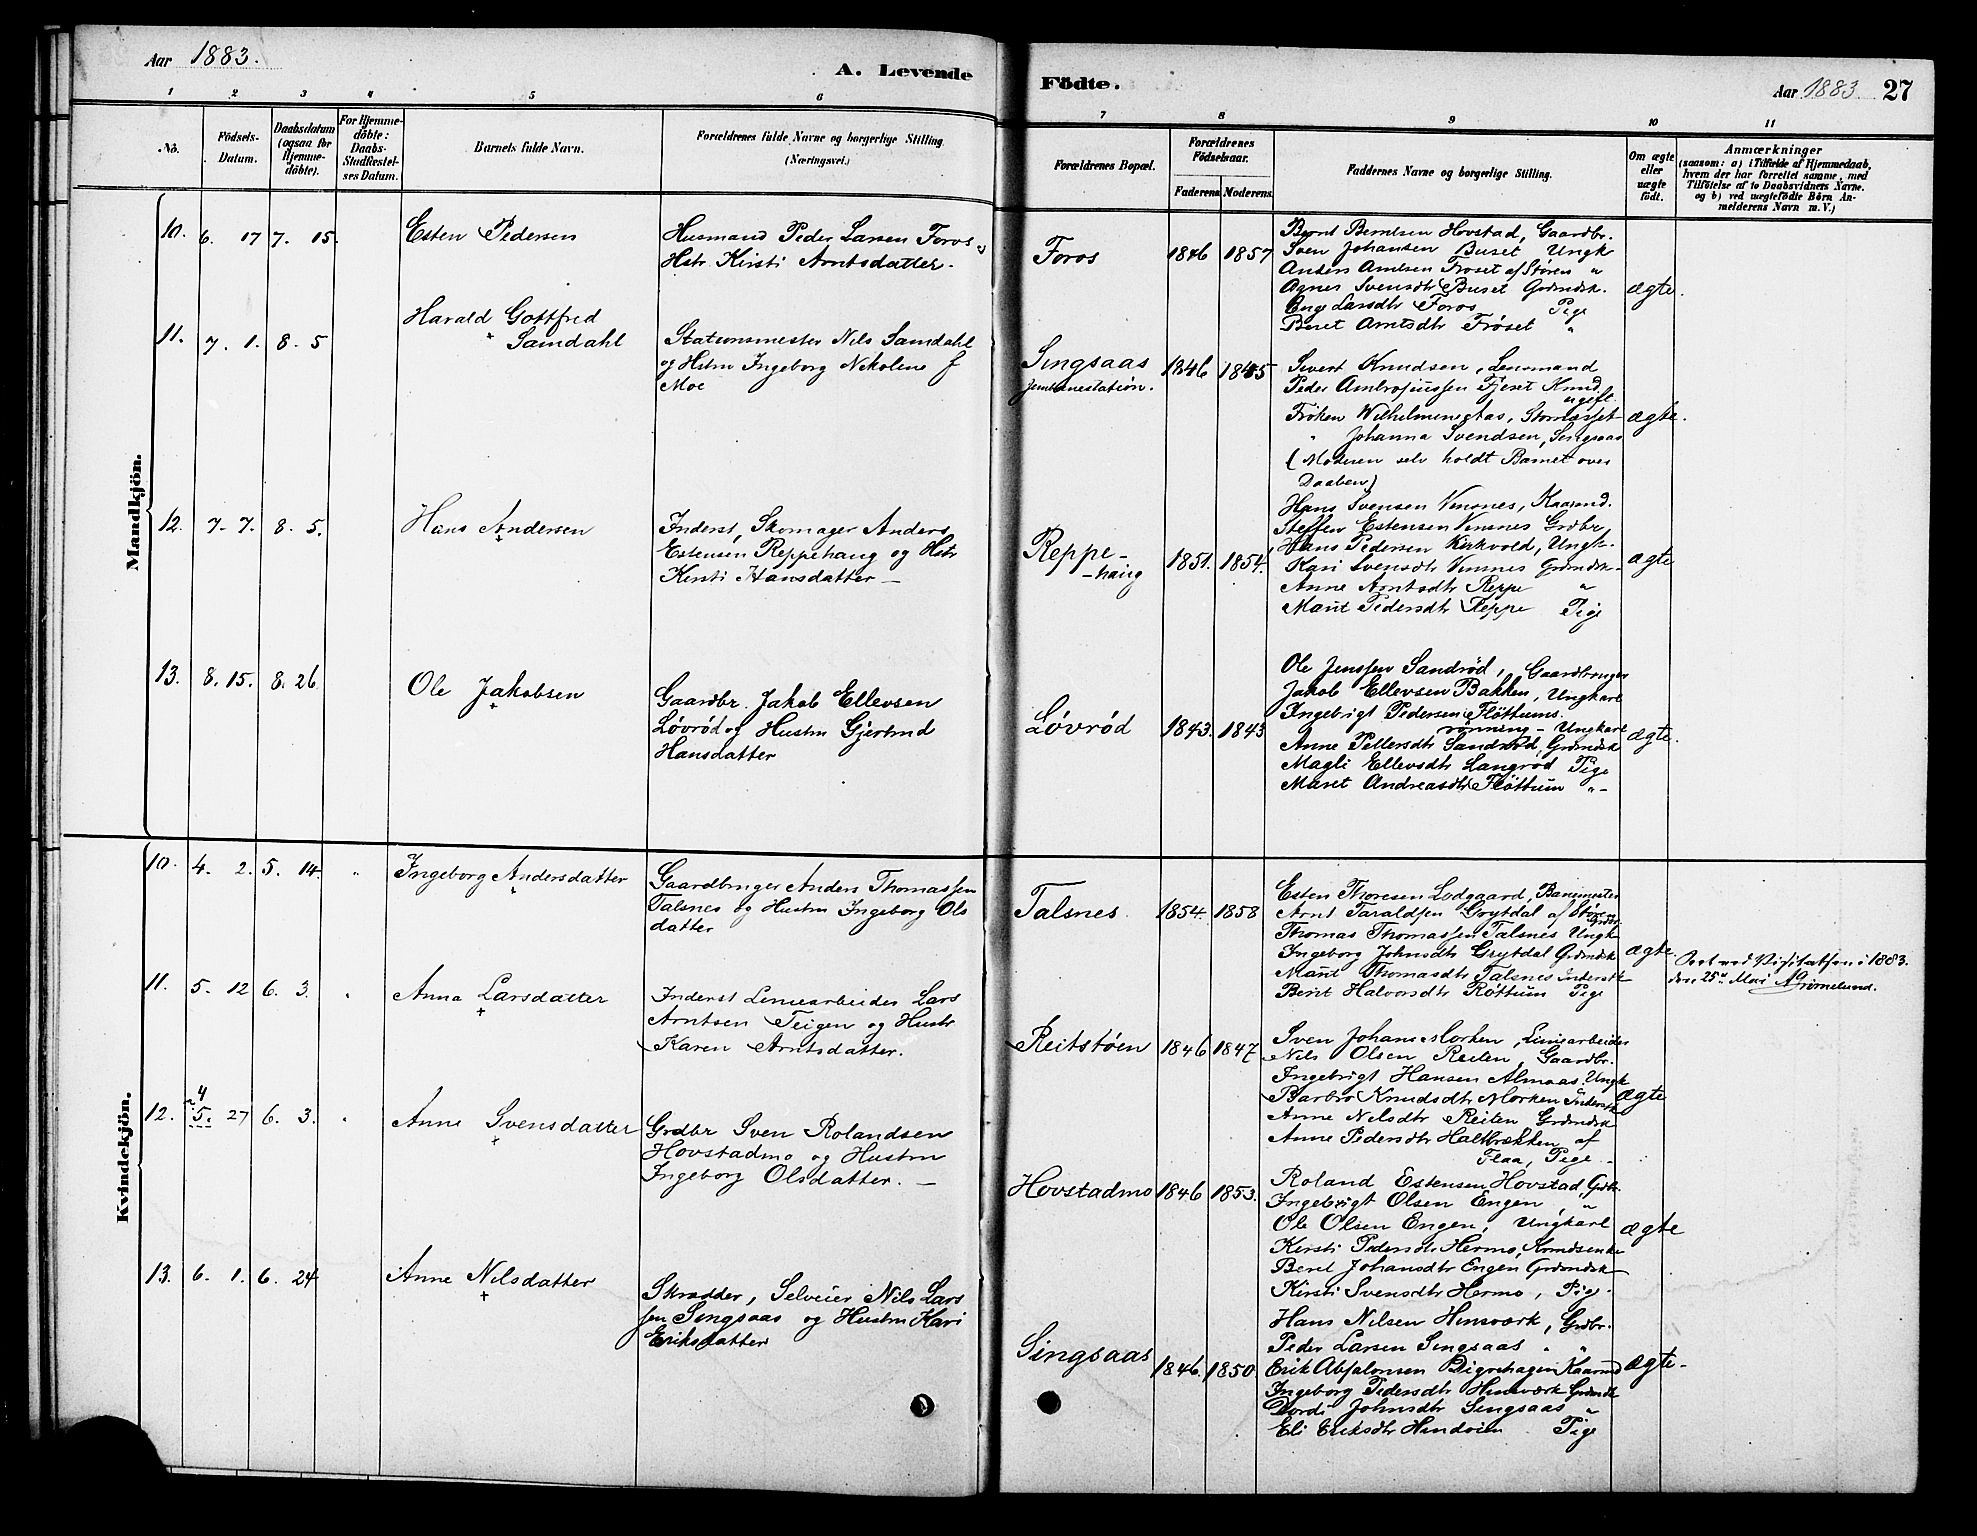 Aar 1883.
A. Levende
Födte.
Aar 1883 27
1 2 3 4 5 6
7 8 9 10 11
No.
Födsels-
Datum.
Daabsdatum
(ogsaa for
Hjemme-
döbte).
For Hjemme-
döbte:
Daabs-
Stadfæstel-
ses Datum.
Barnets fulde Navn.
Forældrenes fulde Navne og borgerlige Stilling
(Næringsvei.)
Forældrenes Bopæl.
Forældrenes
Födselsaar.
Faderens Moderens.
Faddernes Navne og borgerlige Stilling.
Om ægte
eller
uægte
födt.
Anmærkninger
(saasom: a) i Tilfælde af Hjemmedaab,
hvem der har forrettet samme, med
Tilföielse af to Daabsvidners Navne.
og b) ved uægtefödte Börn An-
melderens Navn m. V.)
Mandkjön.
10. 6. 17 7. 15.
Esten Pedersen
Husmand Peder Larsen Foros
Hstr. Kirsti Arntsdatter.
Foros 1846 1857
Bernt Berntsen Hovstad, Gaardbr.
Sven Johansen Buset Ungk
Anders Arntsen Frøset af Støren "
Agnes Svensdtr Buset Grdmdsk.
Eng Larsdtr Foros Pige
Beret Arntsdtr Frøset "
ægte.
11. 7. 1. 8. 5
Harald Gottfred
Samdahl
Stationsmester Nils Samdahl
og Hstru Ingeborg Nikoline f
Moe
Singsaas
jernbanestation.
1846 1845
Sivert Knudsen, Lensmand
Peder Ambrosiussen Fjeset Kmd
ugift.
Frøken
" Johanna Svendsen, Singsaas
(Moderen selv holdt Barnet over
Daaben)
ægte.
12. 7. 7. 8. 5.
Hans Andersen
Inderst, Skomager Anders
Estensen Reppehaug og Hstr
Kirsti Hansdatter —
Reppe-
-haug
1851. 1854.
Hans Svensen Vensnes, Kaarmd.
Steffen Estensen Vensnes Grdbr,
Hans Pedersen Kirkvold, Ungk.
Kari Svensdtr Vensnes Grdmdsk.
Anne Arntsdtr Reppe "
Marit Pedersdtr Reppe Pige
ægte
13. 8. 15. 8. 26
Ole Jakobsen
Gaardbr. Jakob Ellevsen
Løvrød og Hustru Gjertrud
Hansdatter
Løvrød 1843. 1843
Ole Jenssen Sandrød, Gaardbruger
Jakob Ellevsen Bakken, Ungkarl
Ingebrigt Pedersen Fløttums
rønning - Ungkarl
Anne Pettersdtr Sandrød, Grdmdsk
Magli Ellevsdtr Langrød Pige
Marit Andreasdtr Fløttum "-
ægte.
Kvindekjön.
10. 4. 2. 5. 14. "
Ingeborg Andersdatter
Gaardbruger Anders Thomassen
Talsnes og Hustru Ingeborg Ols
datter
Talsnes. 1854. 1858
Esten Thoresen Lodgaard, Banemester
Arnt Taraldsen Grytdal af Støren
Grdbr.
Thomas Thomassen Talsnes Ungk
Ingeborg Johnsdtr Grytdal Grdmdsk
Marit Thomasdtr Talsnes Inderstk
Beret Halvorsdtr Røttum Pige
ægte.
Seet ved Visitatsen i 1883.
den 25de Mai Grimelund.
11. 5. 12 6. 3. "
Anna Larsdatter
Inderst Liniearbeider Lars
Arntsen Teigen og Hustr
Karen Arntsdatter.
Reitstøen 1846 1847
Sven Johans Morken, Liniearbeider
Nils Olsen Reiten Gaardbr.
Ingebrigt Hansen Almaas Ungk
Barbro Knudsdtr Morken Inderstk
Anne Nilsdtr Reiten Grdmdsk
Anne Pedersdtr Haltbrækken af
Flaa, Pige -
ægte
12. 5. 27 6. 3. "
4
Anne Svensdatter
Grdbr Sven Rolandsen
Hovstadmo og Hustru
Ingeborg Olsdatter. —
Hovstadmo 1846 1853.
Roland Estensen Hovstad, Grdb.
Ingebrigt Olsen Engen, "
Ole Olsen Engen, Ungkarl
Kirsti Pedersdtr Hermo,
Beret Johansdtr Engen Grdmdsk
Kirsti Svensdtr Hermo, Pige.
ægte
13. 6. 1. 6. 24
Anne Nilsdatter
Skrædder, Selveier Nils Lars
sen Singsaas og Hustru Kari
Eriksdatter
Singsaas 1846. 1850.
Hans Nilsen Hinsværk, Grdbr.
Peder Larsen Singsaas " "
Erik Absalonsen Kaarmd
Ingeborg Pedersdtr Hinsværk Grdmdsk
Dordi Johnsdtr Singsaas "
Eli Eriksdtr Hindøien Pige
ægte-